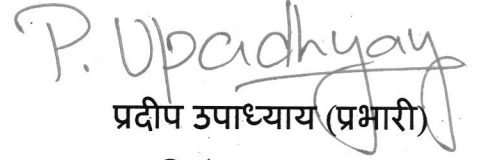 P. Upadhyay
प्रदीप उपाध्याय (प्रभारी)